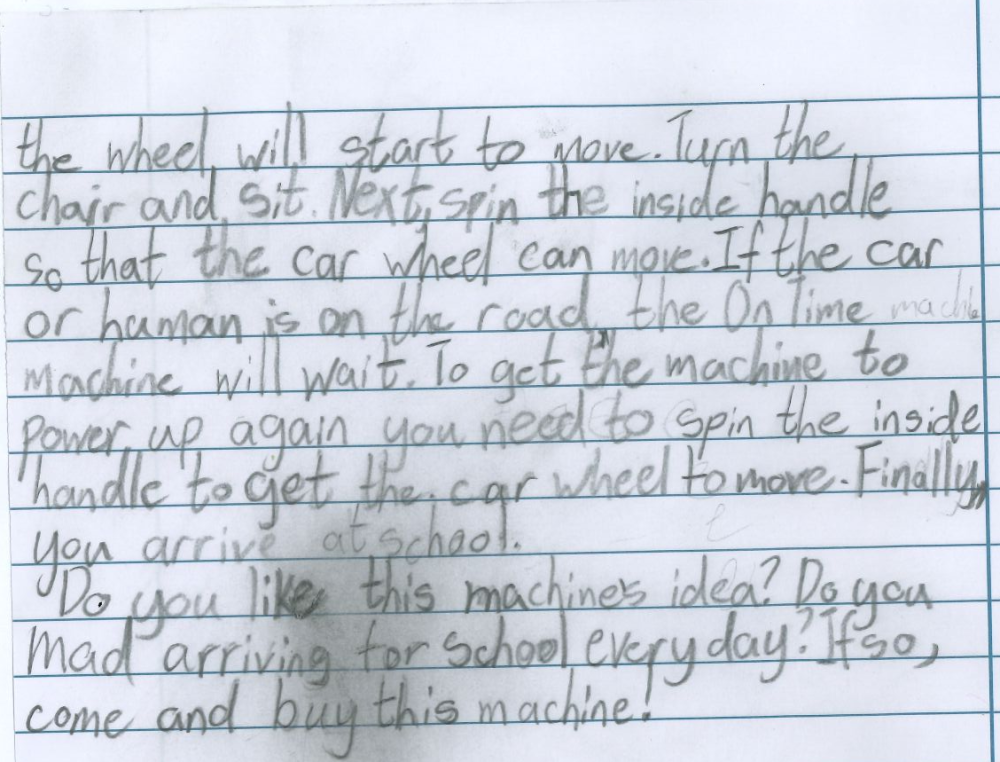 the wheel will start to move. Turn the
chair and sit. Next, spin the inside handle
so that the car wheel can move. If the car
or human is on the road, the On Time machine
machine will wait. To get the machine to
power up again you need to spin the inside
handle to get the car wheel to move. Finally,
you arrive at school.
Do you like this machine's idea? Do you
mad arriving for school everyday? If so,
come and buy this machine!